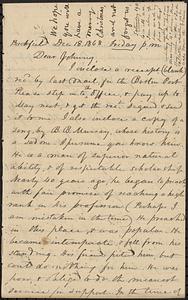 We hope
you will
have a
merry
Christmas
and not
forget us.
Rockford Dec. 18, 1868 Friday p.m.
Dear Johnny,
I enclose a receipt
by last mail for the Boston Post
Please step into office, & pay up to
May next, & get the rec't signed & send
it to me. I also inclose a copy of a
Song, by B. B. Murray, whose history is
a sad one. I presume you knew him.
He is a man of superior natural
ability, & of respectable scholarship
Nearly 30 years ago, he began to preach
with fair promise of reaching a high
rank in his profession. (Perhaps I
am mistaken in the time) He preached
in this place, & was popular. He
became intemperate, & fell from his
standing. His friends pitied him, but
could do nothing for him. He was
poor, & obliged to do the meanest
services for support. In the time of